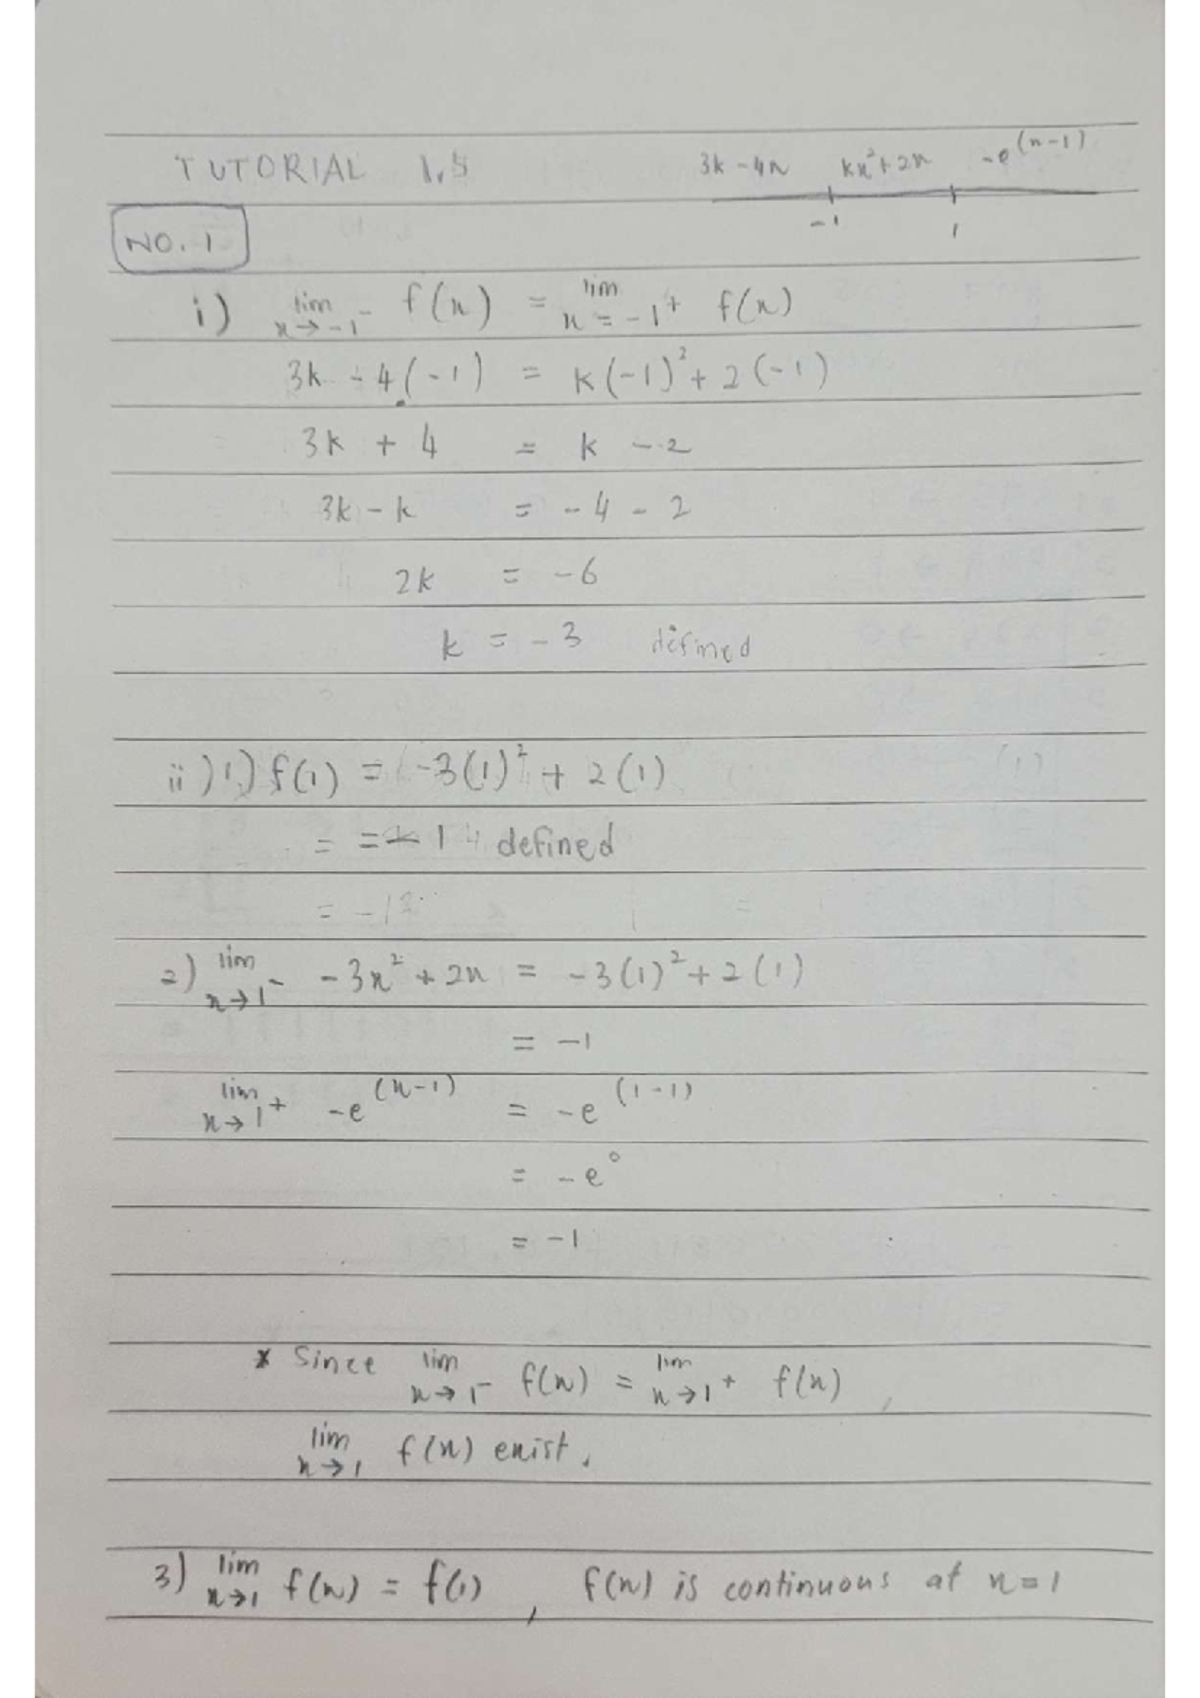 TUTORIAL 1.5
3k - 4x kx² + 2x -e^(x-1)
-1 1
NO. 1
i) lim x→-1⁻ f(x) = lim x=-1⁺ f(x)
3k - 4(-1) = k(-1)² + 2(-1)
3k + 4 = k - 2
3k - k = -4 - 2
2k = -6
k = -3 defined
ii) 1) f(1) = -3(1)² + 2(1)
= = -1 defined
2) lim x→1⁻ -3x² + 2x = -3(1)² + 2(1)
= -1
lim x→1⁺ -e^(x-1) = -e^(1-1)
= -e⁰
= -1
* Since lim x→1⁻ f(x) = lim x→1⁺ f(x),
lim x→1 f(x) exist.
3) lim x→1 f(x) = f(1), f(x) is continuous at x=1